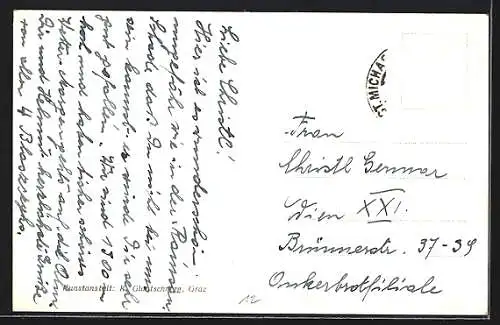 Liebe Christl!
Hier ist es wunderschön
ungefähr wie in der Ramsau.
Schade, daß Du nicht bei uns
sein kannst, es würde Dir sehr
gut gefallen. Wir sind 1300 m
hoch und haben bisher schönes
Wetter. Morgen gehts auf
Dir und Helmut herzlichste Grüße
von allen 4
Kunstanstalt: K. Graz
ST. MICHA
Frau
Christl
Wien XXI.
Brünnerstr. 37-39
Ankerbrotfiliale
12